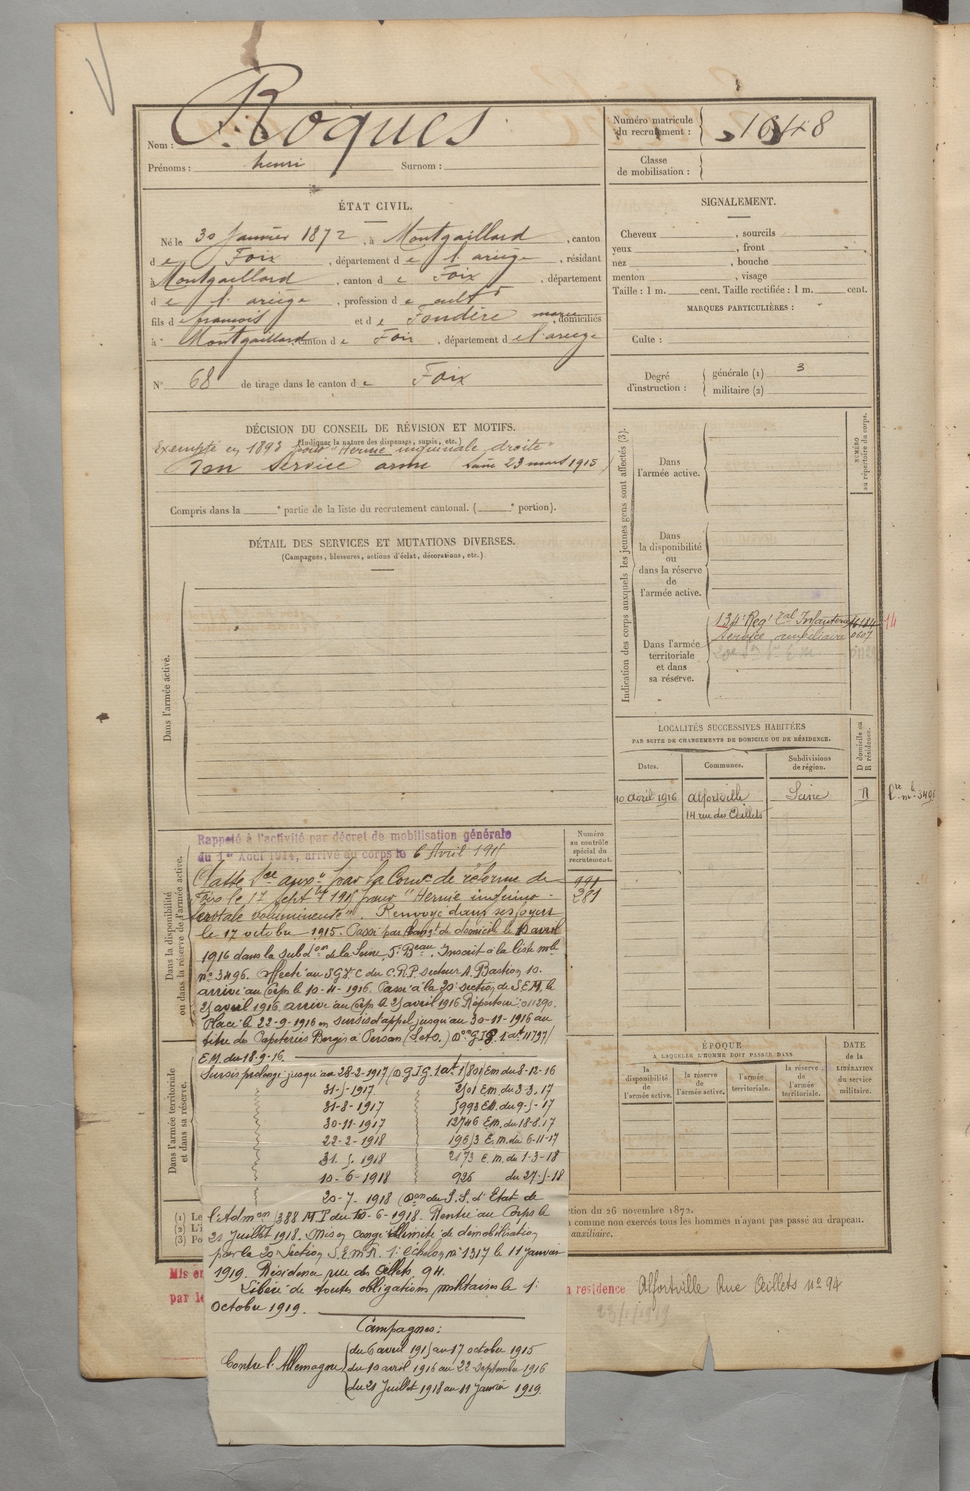 Nom : Roques
Prénoms : henri Surnom :
Numéro matricule du recrutement : 1648
Classe de mobilisation :
ÉTAT CIVIL.
Né le 30 Janvier 1872, à Montgaillard, canton
de Foix, département de l'ariège, résidant
à Montgaillard, canton de Foix, département
de l'ariège, profession de cult
fils de françois et de Fondère marie, domiciliés
à Montgaillard, canton de Foix, département de l'ariège
N° 68 de tirage dans le canton de Foix
SIGNALEMENT.
Cheveux , sourcils
yeux , front
nez , bouche
menton , visage
Taille : 1 m. cent. Taille rectifiée : 1 m. cent.
MARQUES PARTICULIÈRES :
Culte :
Degré d'instruction : générale (1) 3
militaire (2)
DÉCISION DU CONSEIL DE RÉVISION ET MOTIFS.
(Indiquer la nature des dispenses, sursis, etc.)
Exempté en 1893 pour "Hernie inguinale droite"
Bon service armé (Loi 23 mars 1915)
Compris dans la e partie de la liste du recrutement cantonal. ( e portion).
DÉTAIL DES SERVICES ET MUTATIONS DIVERSES.
(Campagnes, blessures, actions d'éclat, décorations, etc.)
Dans l'armée active.
Indication des corps auxquels les jeunes gens sont affectés (3).
NUMÉRO au répertoire du corps.
Dans l'armée active.
Dans la disponibilité ou dans la réserve de l'armée active.
Dans l'armée territoriale et dans sa réserve.
134e Reg' Tal Infanterie 14
Service auxiliaire 0607
LOCALITÉS SUCCESSIVES HABITÉES
PAR SUITE DE CHANGEMENTS DE DOMICILE OU DE RÉSIDENCE.
Dates. Communes. Subdivisions de région. D domicile ou R résidence.
10 avril 1916 Alfortville Seine R
14 rue des Œillets
Dans la disponibilité ou dans la réserve de l'armée active.
Numéro au contrôle spécial du recrutement.
381
Rappelé à l'activité par décret de mobilisation générale
du 1er Août 1914, arrivé au corps le 6 Avril 1915
Classé Sce auxre par la Comon de réforme de
Foix le 17 Septbre 1915 pour "Hernie inguino-
scrotale volumineuse". Renvoyé dans ses foyers
le 17 octobre 1915. Passé par changt de domicile le 10 avril
1916 dans la subdon de la Seine, 5e Beau. Inscrit à la liste mle
no 3496. affecté au S.G.V.C du C.R.P. secteur A. Bastion 10.
arrivé au Corps le 10-4-1916. Passé à la 20e section de S.E.M. le
25 avril 1916 arrivé au Corps le 25 avril 1916 Répertoire : 011290.
Placé le 22-9-1916 en sursis d'appel jusqu'au 30-11-1916 au
titre des Papeteries Bergès à Persan (S et O.) Don G.I.P. 1.at 11797/
E.M. du 18-9-16.
Dans l'armée territoriale et dans sa réserve.
Sursis prolongé jusqu'au 28-2-1917 (D.G.I.G. 1at 15801 Em du 8-12-16
31-5-1917 2501 E.M. du 3-3-17
31-8-1917 5993 E.M. du 9-5-17
30-11-1917 12746 E.M. du 18-8-17
22-2-1918 19653 E.M. du 6-11-17
31-5-1918 2173 E.M. du 1-3-18
10-6-1918 926 du 27-5-18
20-7-1918 (Don du S.S. d'Etat de
l'Admon 5388 M.P du 10-6-1918. Rentré au Corps le
21 Juillet 1918. Mis en congé illimité de démobilisation
par la 20e Section S.E.M.R. 1er échelon no 1317 le 11 janvier
1919. Résidence rue des Œillets, 94.
Libéré de toutes obligations militaires le 1er
octobre 1919.
Campagnes :
Contre l'Allemagne du 6 avril 1915 au 17 octobre 1915
du 10 avril 1916 au 22 Septembre 1916
du 21 Juillet 1918 au 11 Janvier 1919.
ÉPOQUE
A LAQUELLE L'HOMME DOIT PASSER DANS
la disponibilité de l'armée active. la réserve de l'armée active. l'armée territoriale. la réserve de l'armée territoriale.
DATE de la LIBÉRATION du service militaire.
(1) Le
(2) L'i
(3) Po
ction du 26 novembre 1872.
comme non exercés tous les hommes n'ayant pas passé au drapeau.
auxiliaire.
Mis en
par le
residence Alfortville Rue Œillets no 94
23/1/1919